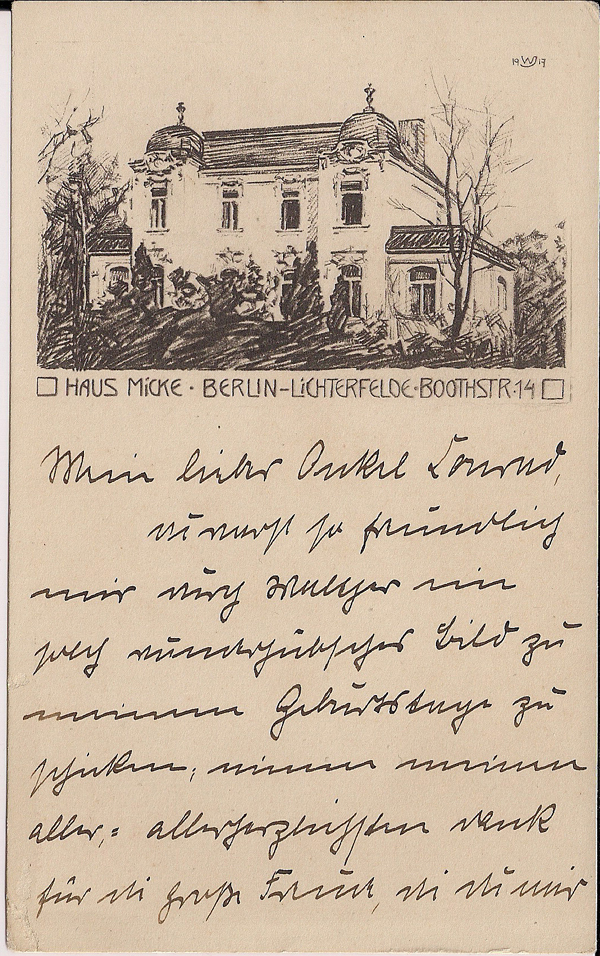 19 W 17
HAUS MICKE · BERLIN-LICHTERFELDE·BOOTHSTR·14
Mein lieber Onkel Conrad,
du warst so freundlich
mir durch Walther ein
solch wunderhübsches Bild zu
meinem Geburtstage zu
schicken; nimm meinen
aller,= allerherzlichsten Dank
für die große Freude, die du mir